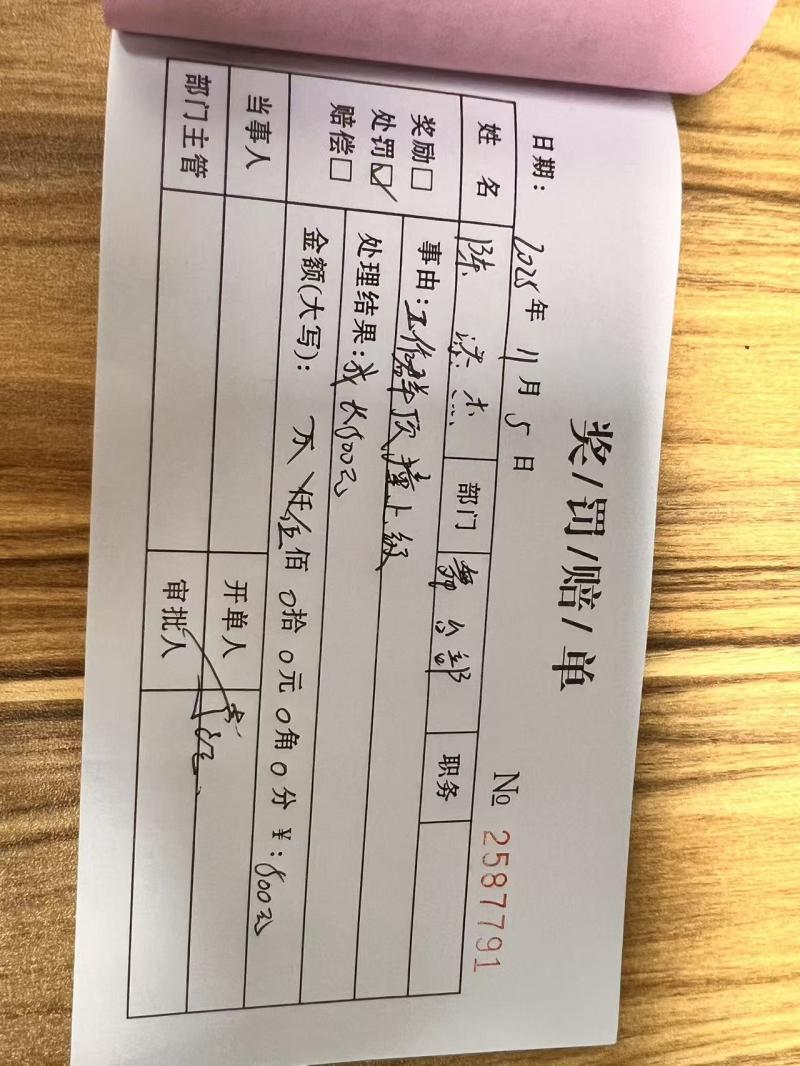 奖/罚/赔/单
日期: 2025年 11月 5日 № 2587791
姓名 陈 部门 舞台部 职务
奖励□ 处罚☑ 赔偿□
事由:工作群顶撞上级
处理结果:成长500元
金额(大写): 万 仟 伍佰 0拾 0元 0角 0分 ¥:500元
当事人 开单人
部门主管 审批人